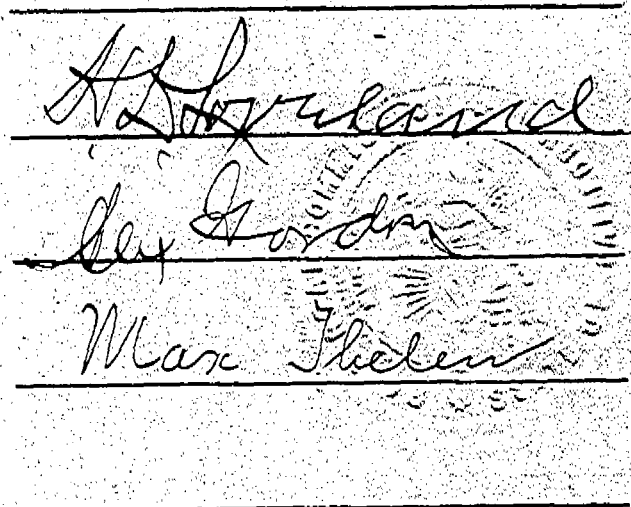 H. D. Loveland
Alex Gordon
Max Thelen